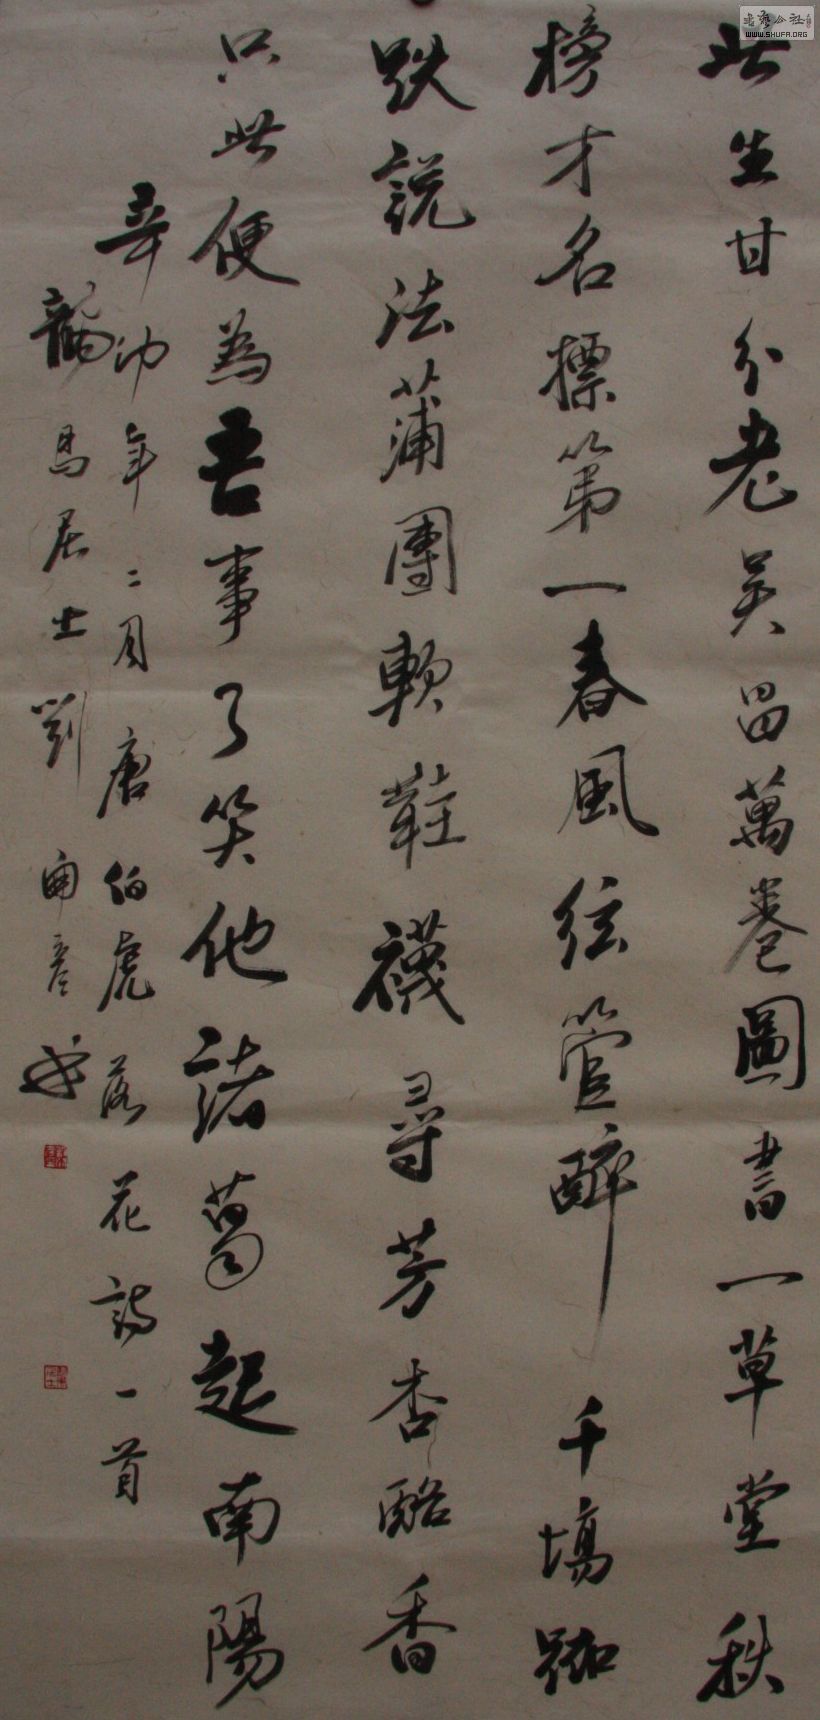 此生甘分老吴昌萬卷圖書一草堂秋
榜才名標第一春風絃管醉千場跏
趺說法蒲團軟鞋襪尋芳杏酪香
只此便為吾事了笑他諸葛起南陽
辛卯年二月唐伯虎落花詩一首
馬居士劉
WWW.SHUFA.ORG